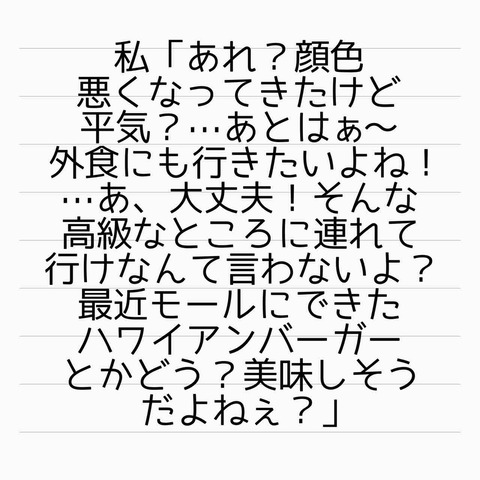 私「あれ？顔色
悪くなってきたけど
平気？…あとはぁ～
外食にも行きたいよね！
…あ、大丈夫！そんな
高級なところに連れて
行けなんて言わないよ？
最近モールにできた
ハワイアンバーガー
とかどう？美味しそう
だよねぇ？」